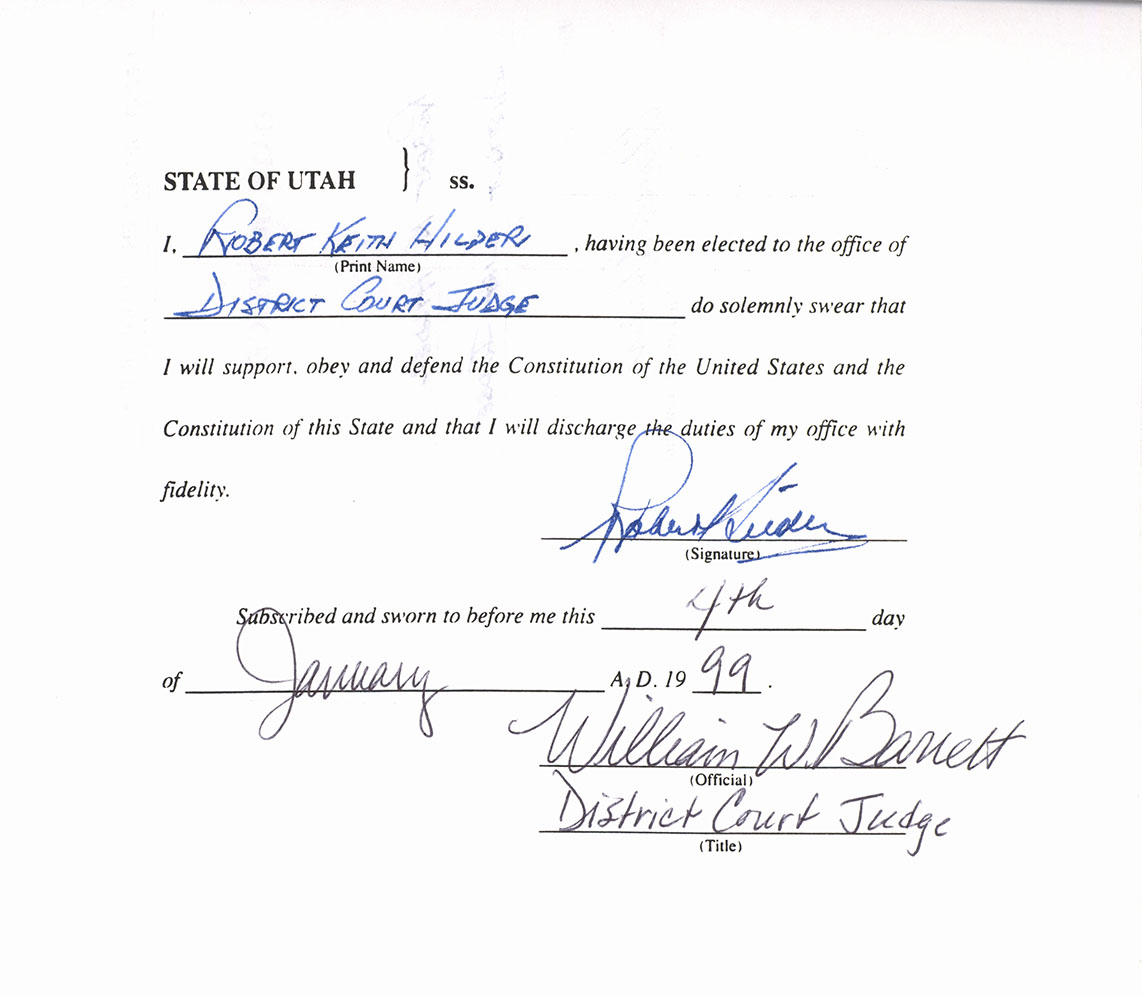 STATE OF UTAH } ss.
I, ROBERT KEITH HILDER , having been elected to the office of
(Print Name)
DISTRICT COURT JUDGE do solemnly swear that
I will support, obey and defend the Constitution of the United States and the
Constitution of this State and that I will discharge the duties of my office with
fidelity.
Robert K Hilder
(Signature)
Subscribed and sworn to before me this 4th day
of January A.D. 19 99 .
William W. Barrett
(Official)
District Court Judge
(Title)